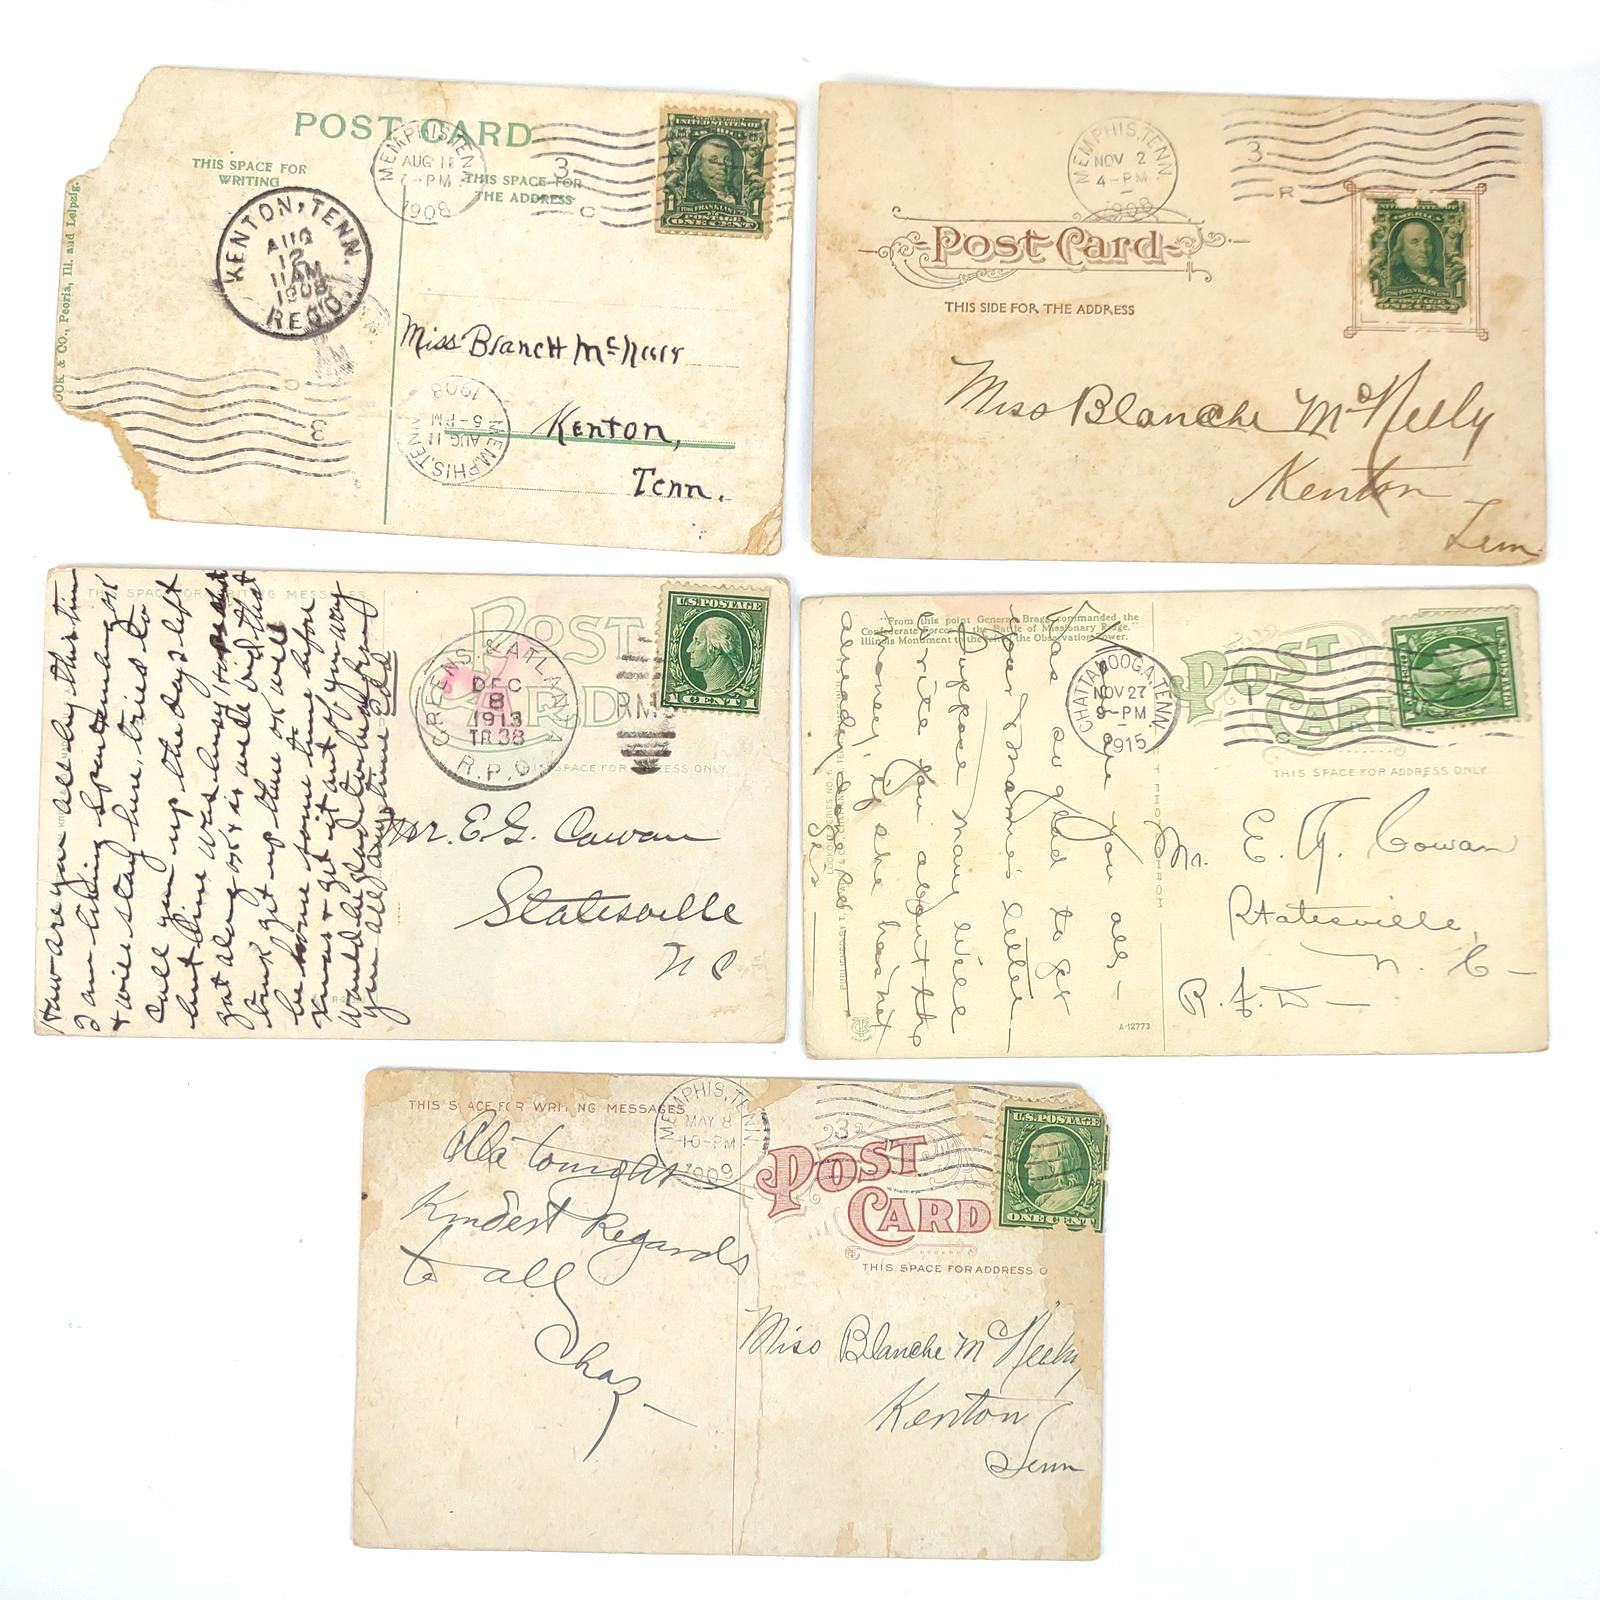 POST CARD
THIS SPACE FOR
WRITING
THIS SPACE FOR
THE ADDRESS
OOK & CO., Peoria, Ill. and Leipzig.
MEMPHIS, TENN.
AUG 11
-PM
1908
3
C
UNITED STATES OF
AMERICA
1 FRANKLIN 1
POSTAGE
ONE CENT
KENTON, TENN.
AUG
12
11 AM
1908
REC'D.
Miss Blanch
Kenton,
Tenn.
MEMPHIS, TENN
AUG 11
5-PM
1908
3
C
MEMPHIS, TENN.
NOV 2
4-PM
1908
3
R
Post Card
THIS SIDE FOR THE ADDRESS
Miss Blanche McNeely
Kenton
Tenn
THIS SPACE FOR WRITING MESSAGES
POST
CARD
THIS SPACE FOR ADDRESS ONLY
GREENS. & ATLANTA
DEC
8
1913
TR.38
R.P.O.
RM
U.S. POSTAGE
1 CENT 1
How are you all by this time
I am liking Spartanburg ok
+ will stay here, tried to
call you up the day I left
but line was busy
got along ok + is well bid that
trunk get up there ok well
be home some time before
Xmas + get it out of you way
would be glad to hear from
you all any time
Mr. E. G. Cowan
Statesville
N C
"From this point General Bragg commanded the
Confederate Forces in the Battle of Missionary Ridge."
Illinois Monument to the the Observation Tower.
POST
CARD
THIS SPACE FOR ADDRESS ONLY
CHATTANOOGA, TENN.
NOV 27
9-PM
1915
are you all,-
Was so glad to get
your & Mamie's letter-
Suppose Mary will
write you about the
money, if she has not
already done so
Sis
Mr. E. G. Cowan
Statesville,
N. C-
R.F.D-
A-12773
PHOTOCHROM
THIS SPACE FOR WRITING MESSAGES
MEMPHIS, TENN.
MAY 8
10-PM
1909
3
POST
CARD
THIS SPACE FOR ADDRESS O
U.S. POSTAGE
ONE CENT
Kindest Regards
to all
Chas-
Miss Blanche McNeely,
Kenton
Tenn